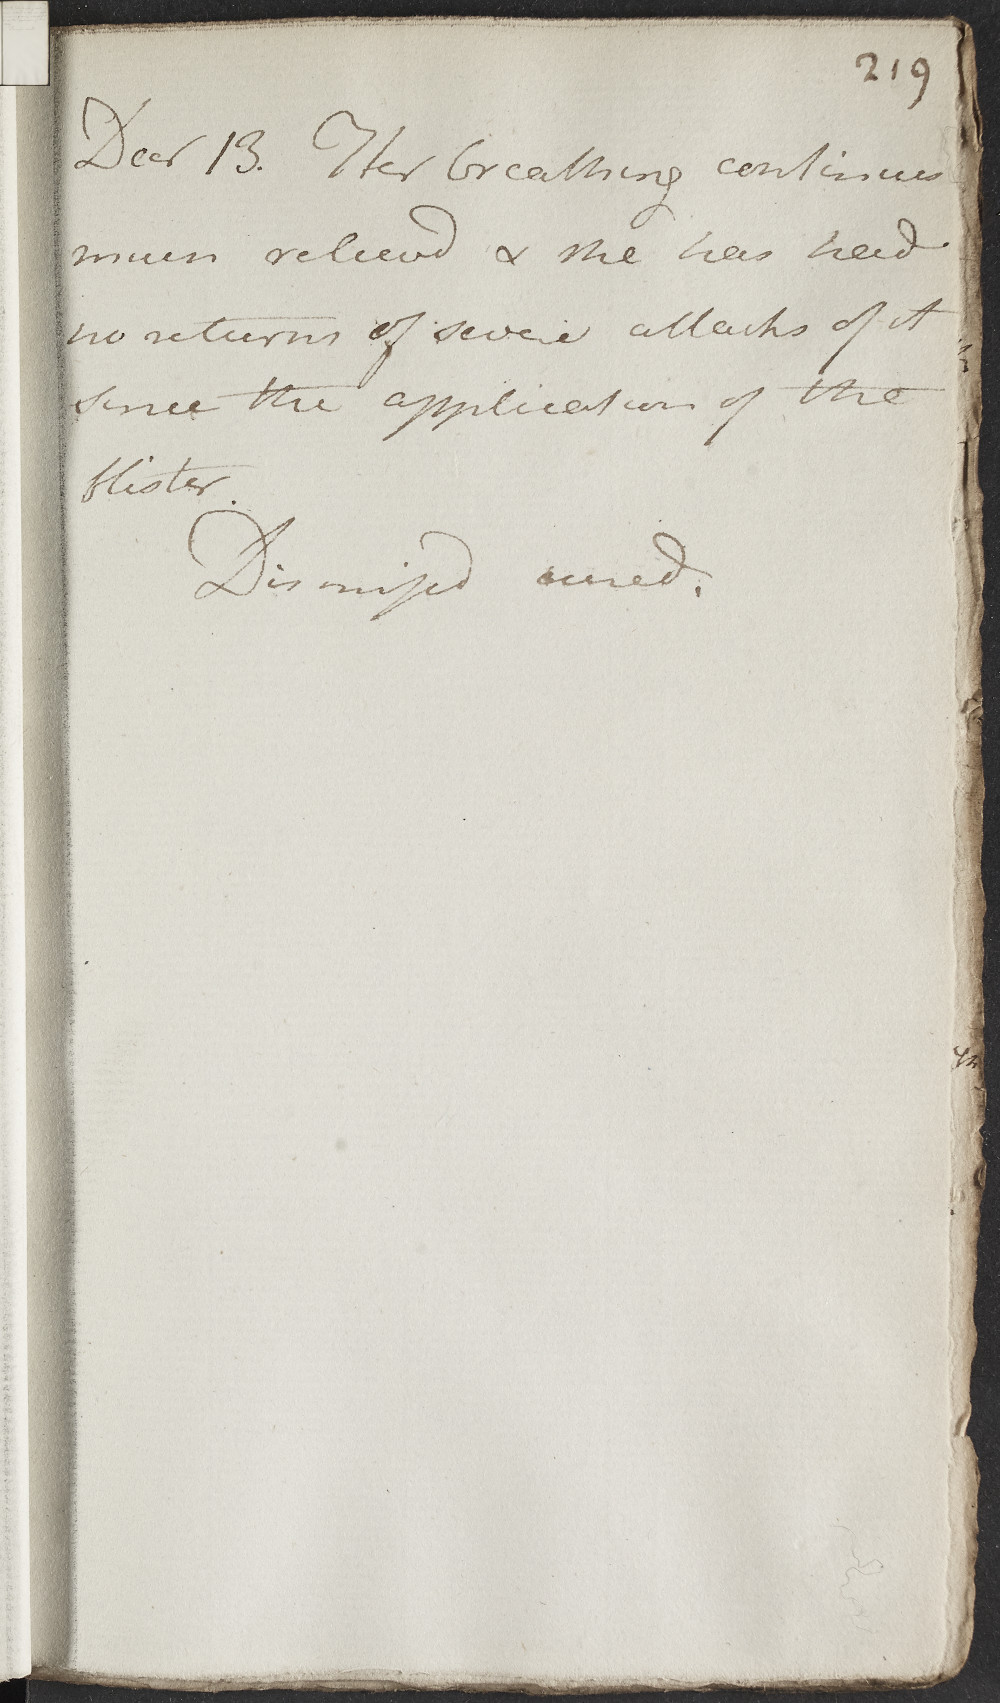 219
Decr 13. Her breathing continues
much relievd & she has had
no returns of severe attacks of it
since the application of the
blister.
Dismissed cured.